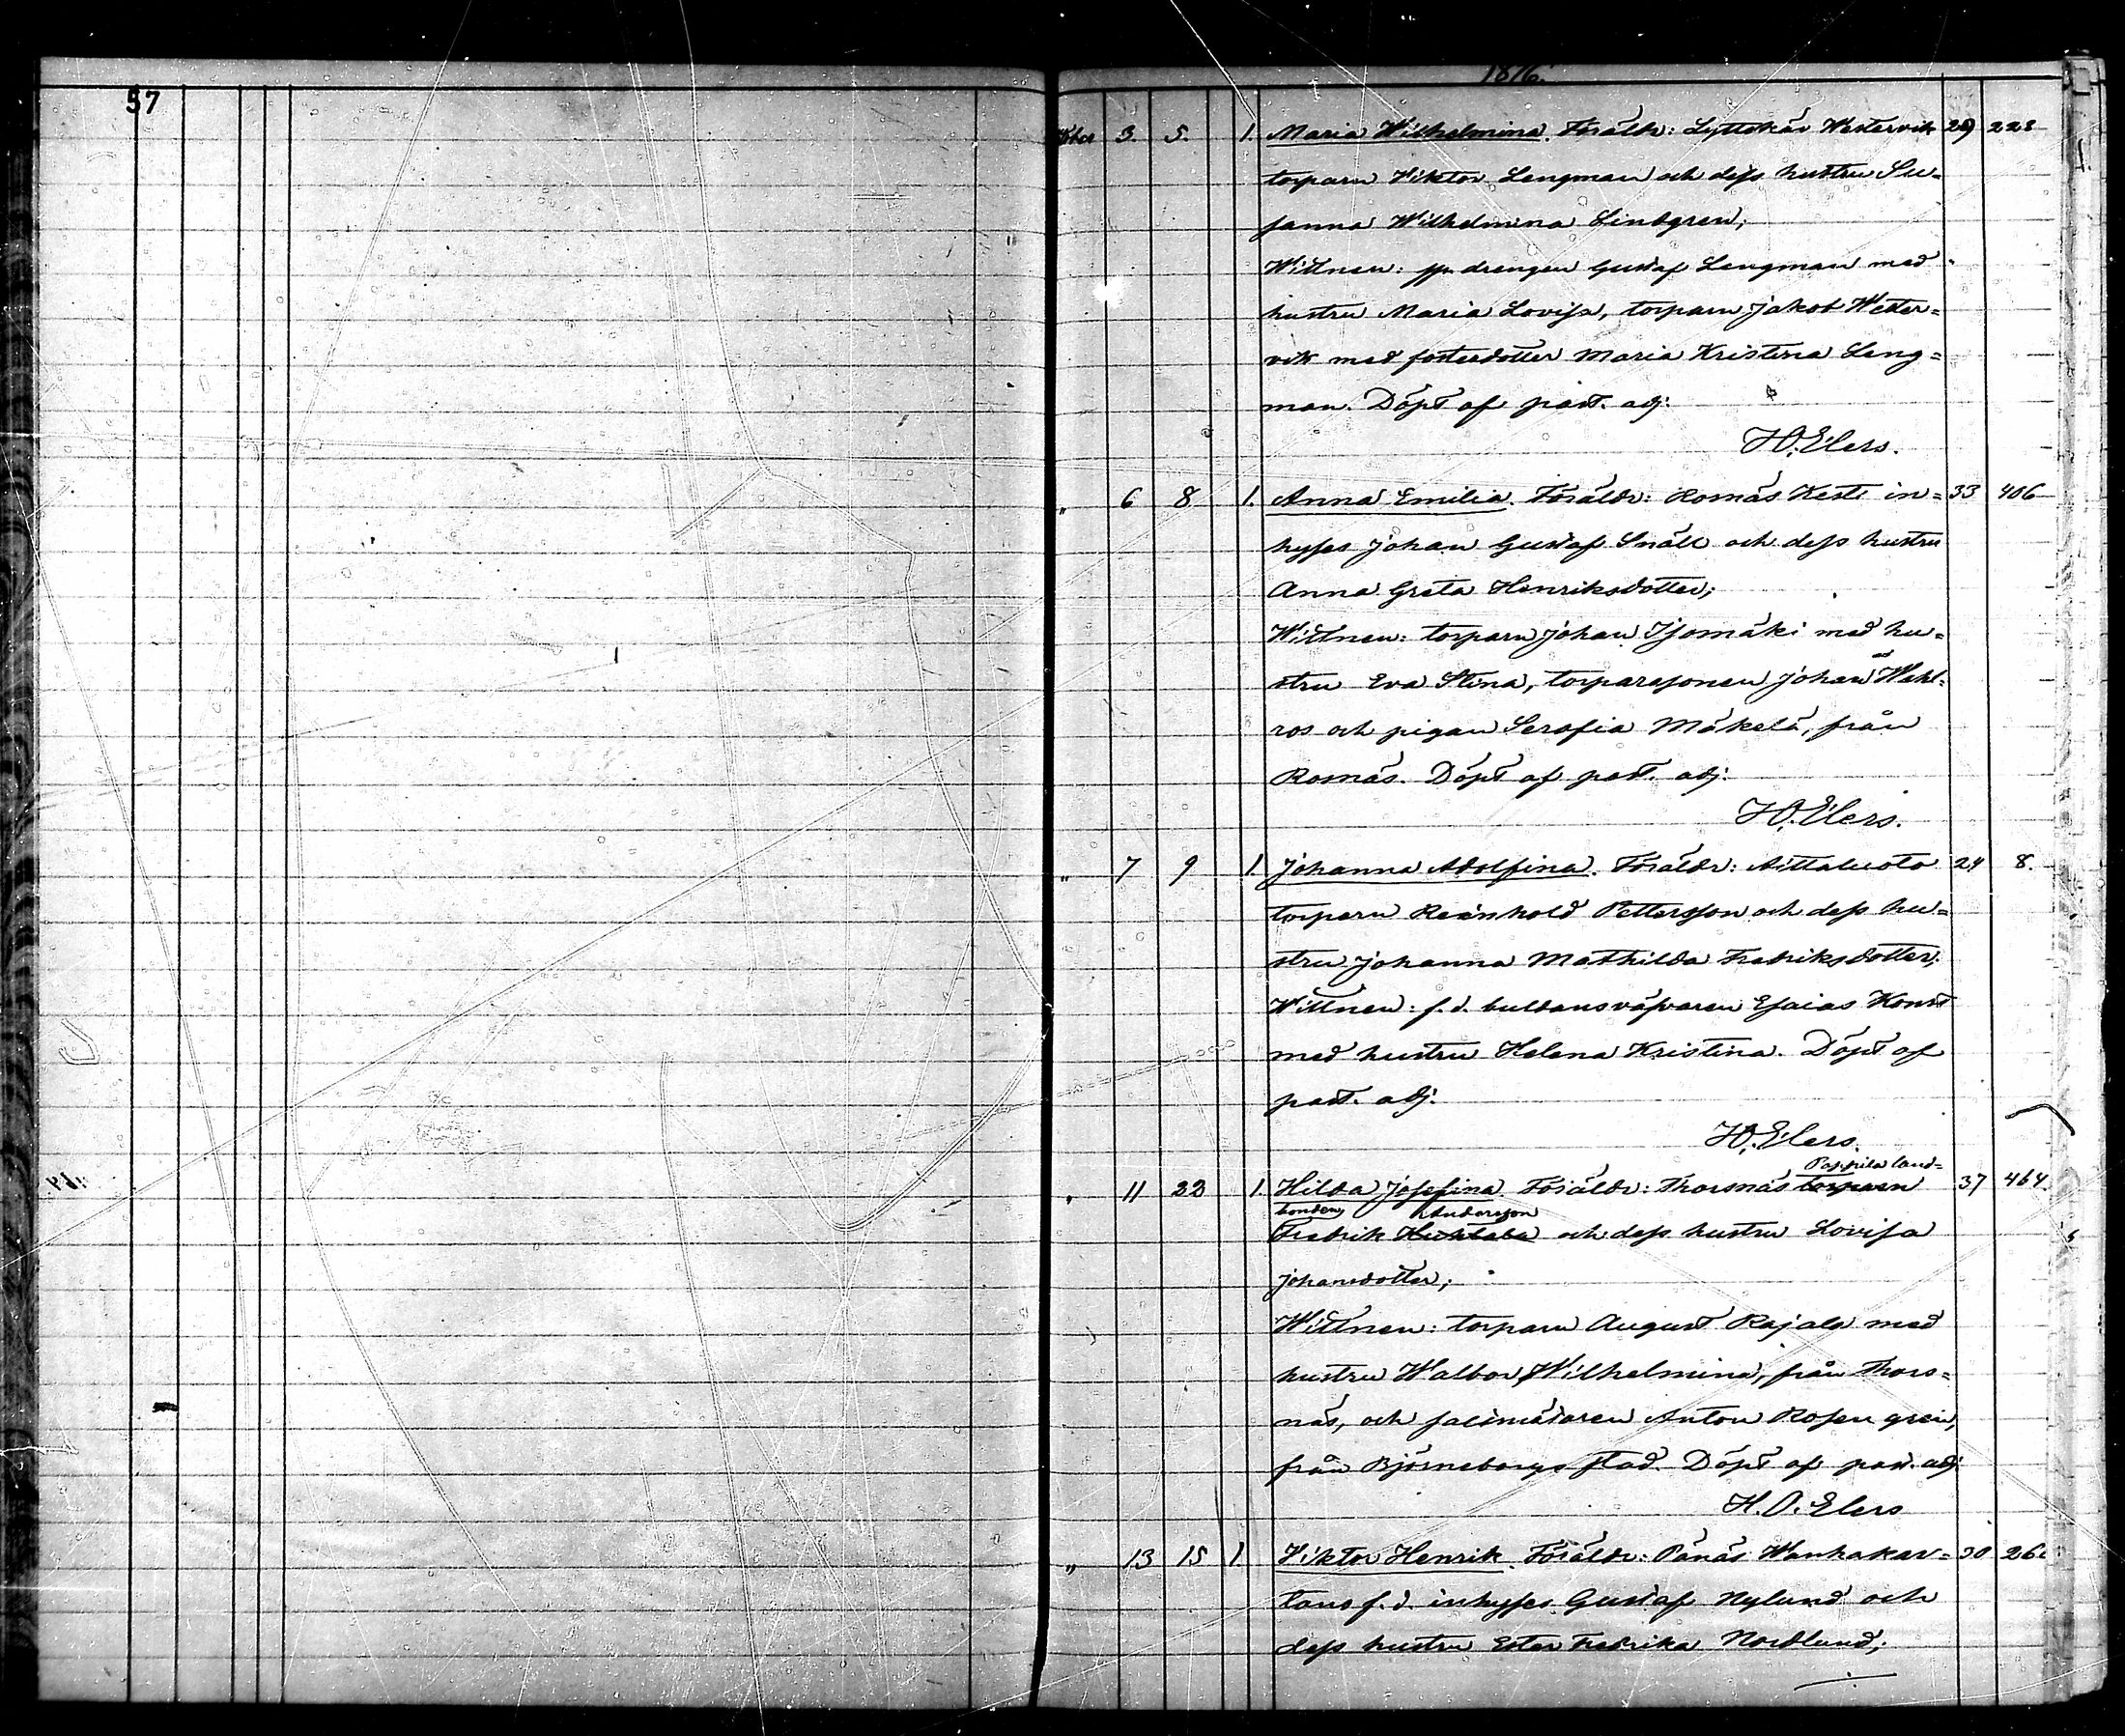 57
1876.
3. 5. 1. Maria Wilhelmina. Föräldr: Lyttskär Westervik 29 228
torparn Viktor Lengman och dess hustru Su-
sanna Wilhelmina Lindgren;
Wittnen: drengen Gustaf Lengman med
hustru Maria Lovisa, torparn Jakob Wester=
vik med fosterdotter Maria Kristina Leng=
man. Döpt af past. adj:
H.O. Elers.
„ 6 8 1. Anna Emilia. Föräldr: Rosnäs Kesti in= 33 406
hyses Johan Gustaf Snäll och dess hustru
Anna Greta Henriksdotter;
Wittnen: torparn Johan Isomäki med hu=
stru Eva Stina, torparesonen Johan Wahl-
ros och pigan Serafia Mäkelä, från
Rosnäs. Döpt af past. adj:
H.O. Elers.
„ 7 9 1 Johanna Adolfina. Föräldr: Aittaluoto 24 8.
torparn Reinhold Pettersson och dess hu=
stru Johanna Mathilda Fredriksdotter;
Wittnen: f.d. buldansväfvaren Esaias Konst
med hustru Helena Kristina. Döpt af
past. adj:
H.O. Elers.
Pappila land=
„ 11 22 1 Hilda Josefina. Föräldr: Thorsnäs torparn 37 464.
bonden Andersson
Fredrik Huhtala och dess hustru Lovisa
Johansdotter;
Wittnen: torparn August Rajala med
hustru Walbor Wilhelmina, från Thors=
näs, och salimätaren Anton Rosengren,
från Björneborgs stad. Döpt af past. adj:
H.O. Elers
„ 13 15 1 Viktor Henrik. Föräldr: Pänäs Wanhakar= 30
tano f.d. inhyses Gustaf Nylund och
dess hustru Ester Fredrika Nordlund;